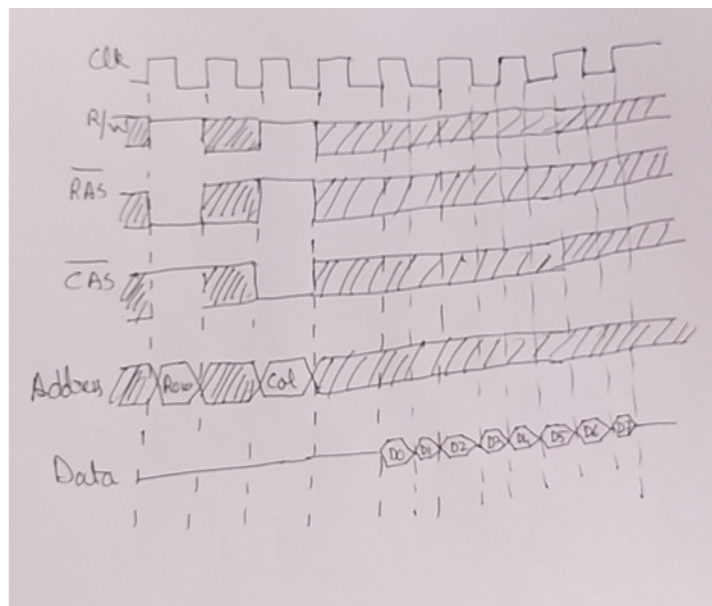 Clk
R/W
RAS
CAS
Address Row Col
Data D0 D1 D2 D3 D4 D5 D6 D7